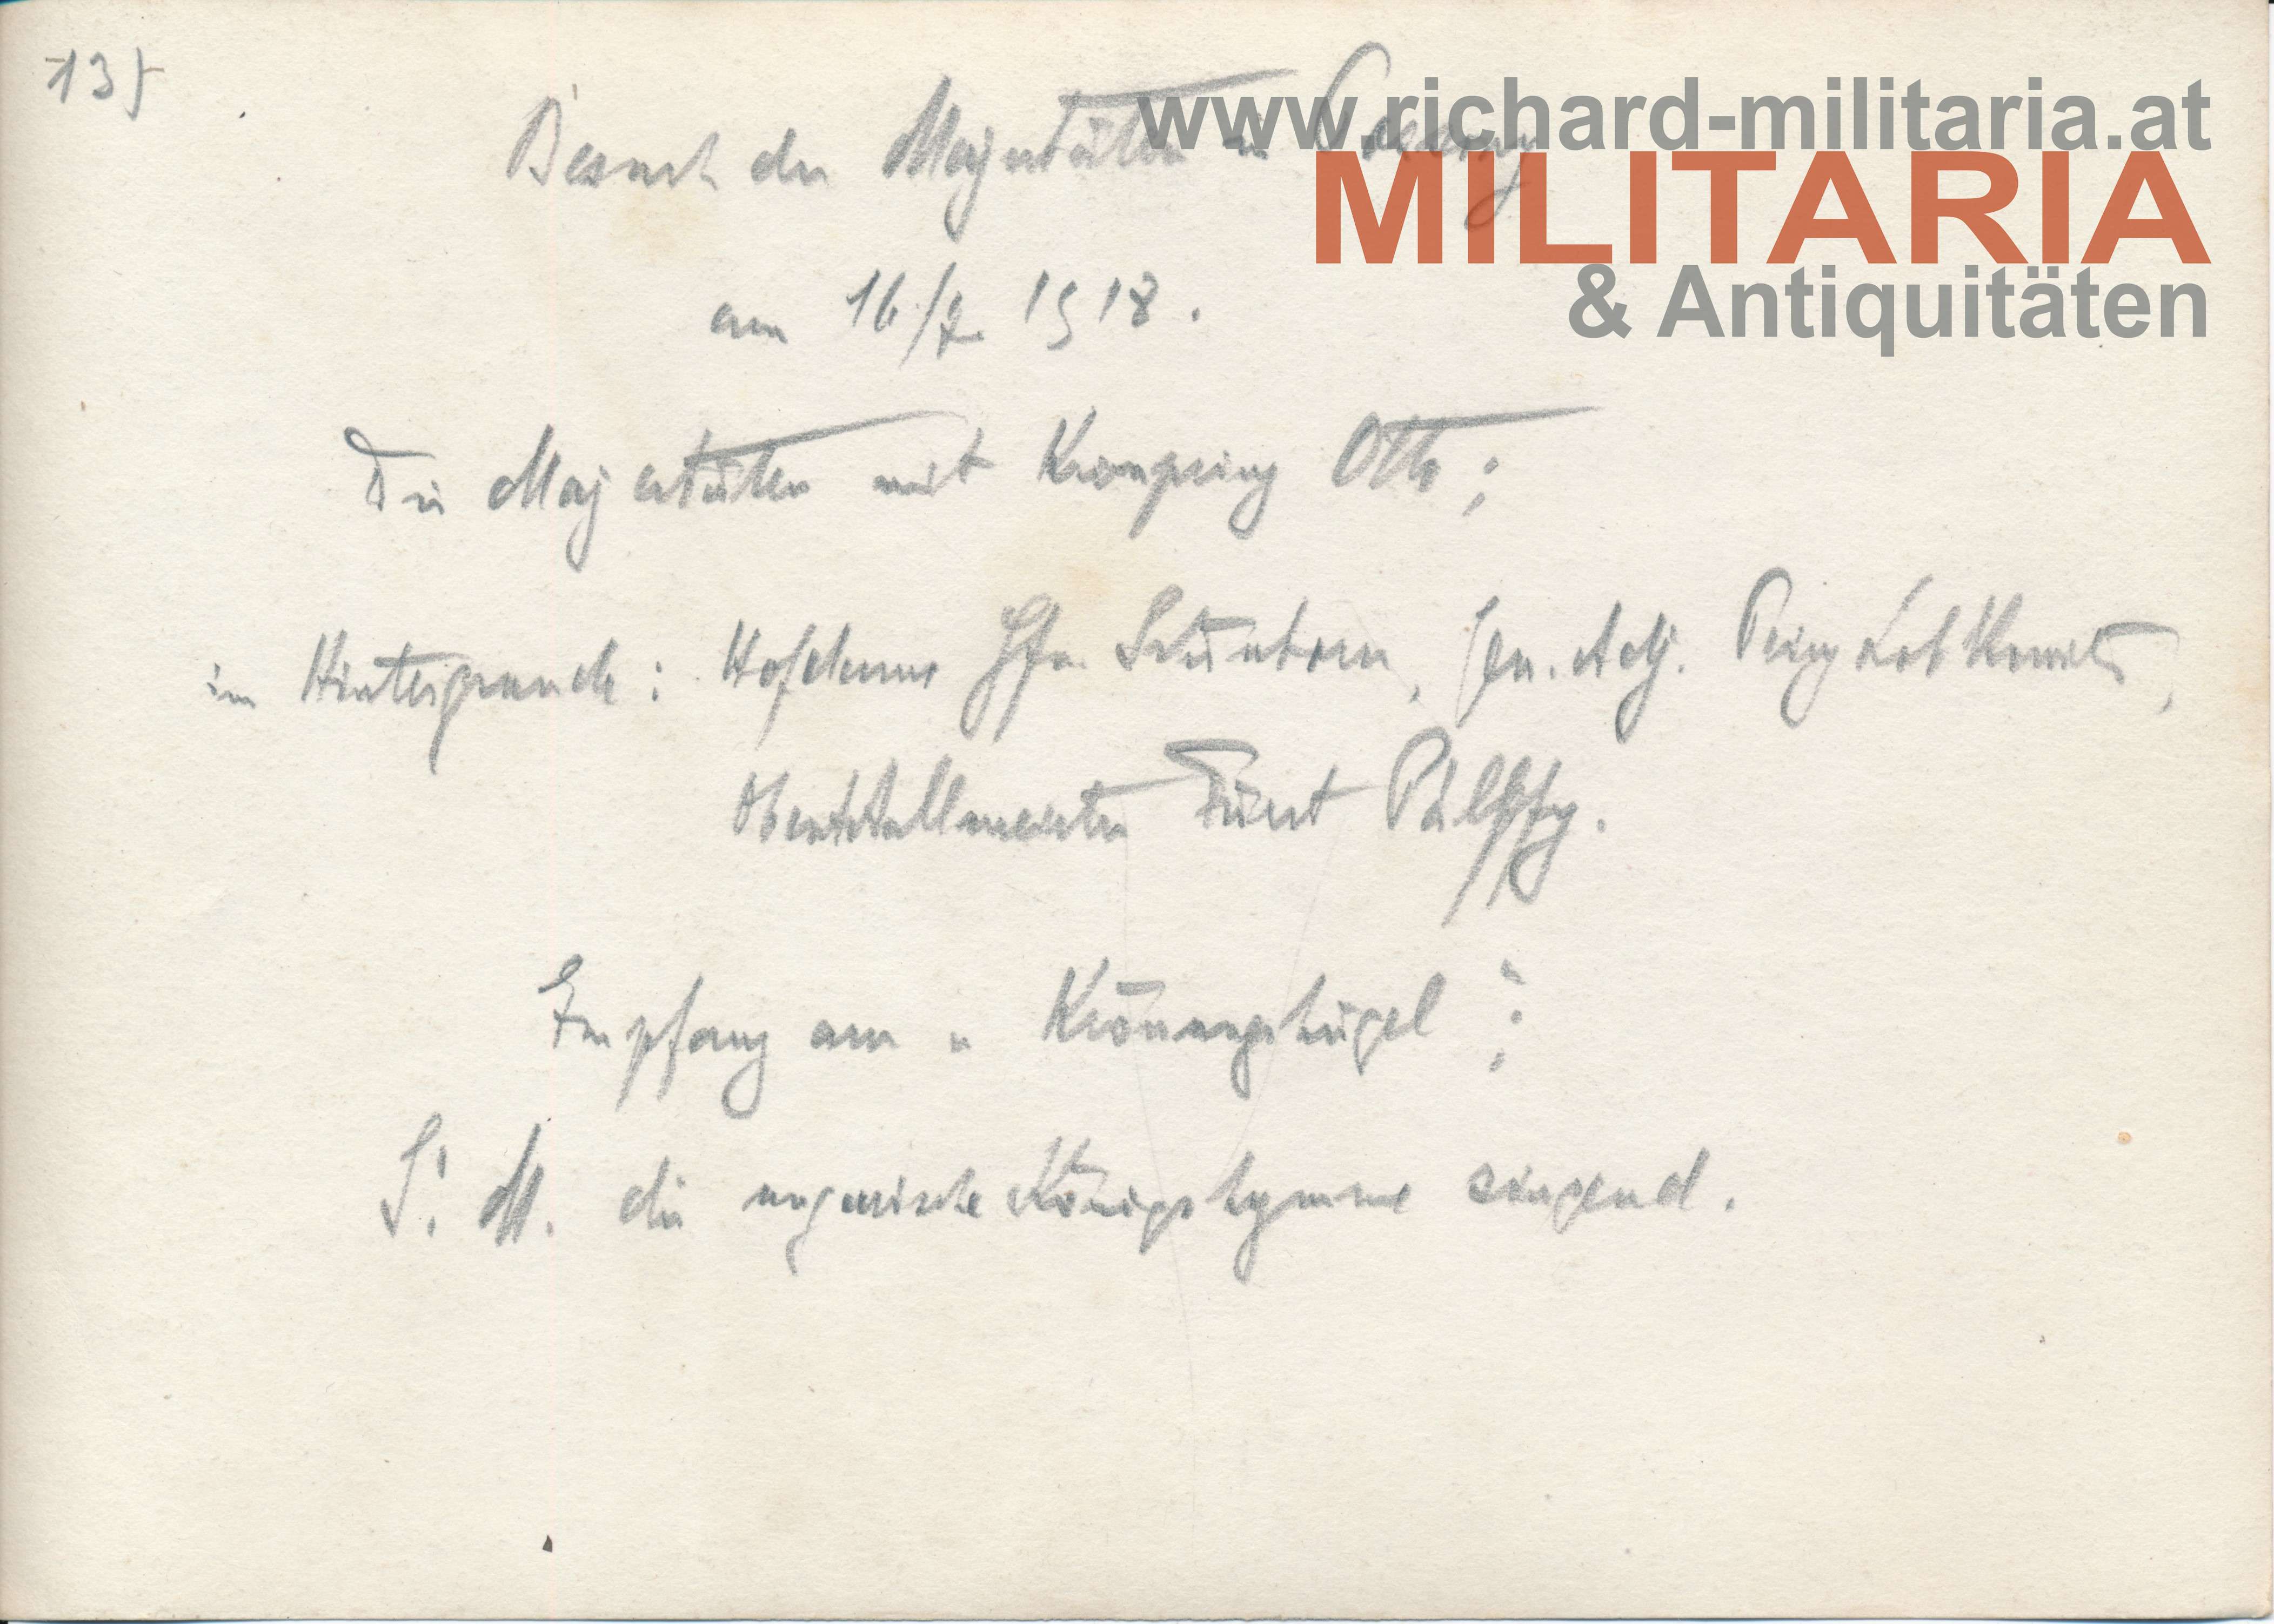 135
www.richard-militaria.at
MILITARIA
& Antiquitäten
Besuch der Majestäten in
am 16/7. 1918.
Die Majestäten mit Kronprinz Otto;
im Hintergrunde: Hofdame Gfn. Schönborn, Gen. Adj. Prinz Lobkowitz,
Oberststallmeister Fürst Pálffy.
Empfang am " Krönungshügel ";
S. M. die ungarische Königshymne singend.